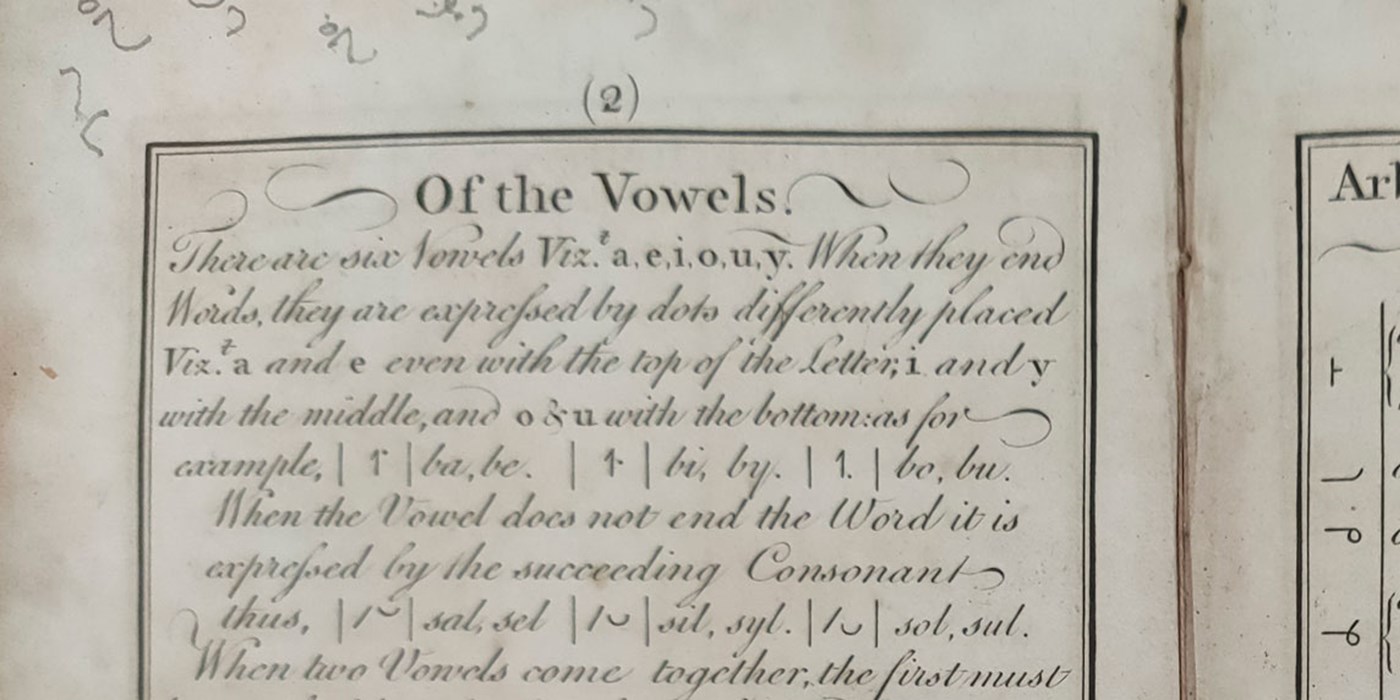 (2)
Of the Vowels.
There are six Vowels Viz.t a, e, i, o, u, y. When they end
Words, they are expreſsed by dots differently placed
Viz.t a and e even with the top of the Letter; i and y
with the middle, and o & u with the bottom: as for
example, | | ba, be. | | bi, by. | | bo, bu.
When the Vowel does not end the Word it is
expreſsed by the succeeding Consonant
thus, | | sal, sel | | sil, syl. | | sol, sul.
When two Vowels come together, the first must